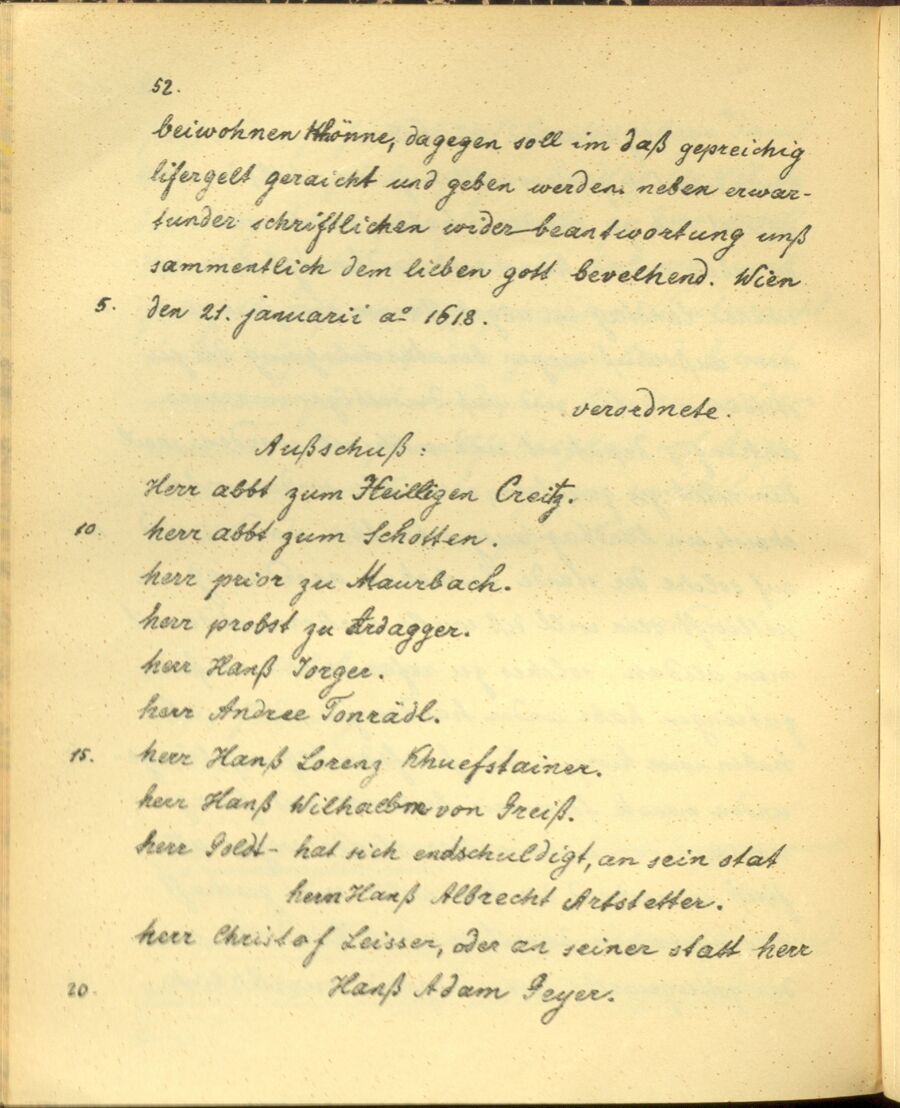 52.
beiwohnen Khönne, dagegen soll im daß gepreichig
lifergelt geraicht und geben werden. neben erwar-
tunder schriftlichen wider beantwortung unß
sammentlich dem lieben gott bevelhend. Wien
5. den 21. januarii aº 1618.
verordnete.
Außschuß:
Herr abbt zum Heilligen Creitz.
10. herr abbt zum Schotten.
herr prior zu Maurbach.
herr probst zu Ardagger.
herr Hanß Jorger.
herr Andree Tonrädl.
15. herr Hanß Lorenz Khuefstainer.
herr Hanß Wilhalbm von Greiß.
herr Poldt- hat sich endschuldigt, an sein stat
herrn Hanß Albrecht Artstetter.
herr Christof Leisser, oder an seiner statt herr
20. Hanß Adam Geyer.